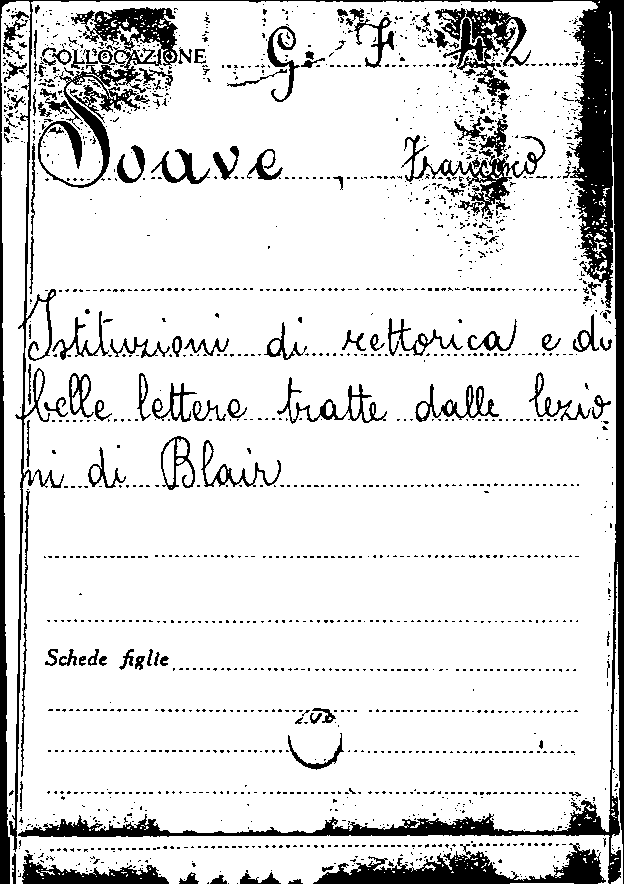 COLLOCAZIONE G. F. 42
Soave, Francesco
Istituzioni di rettorica e di
belle lettere tratte dalle lezio
ni di Blair
Schede figlie